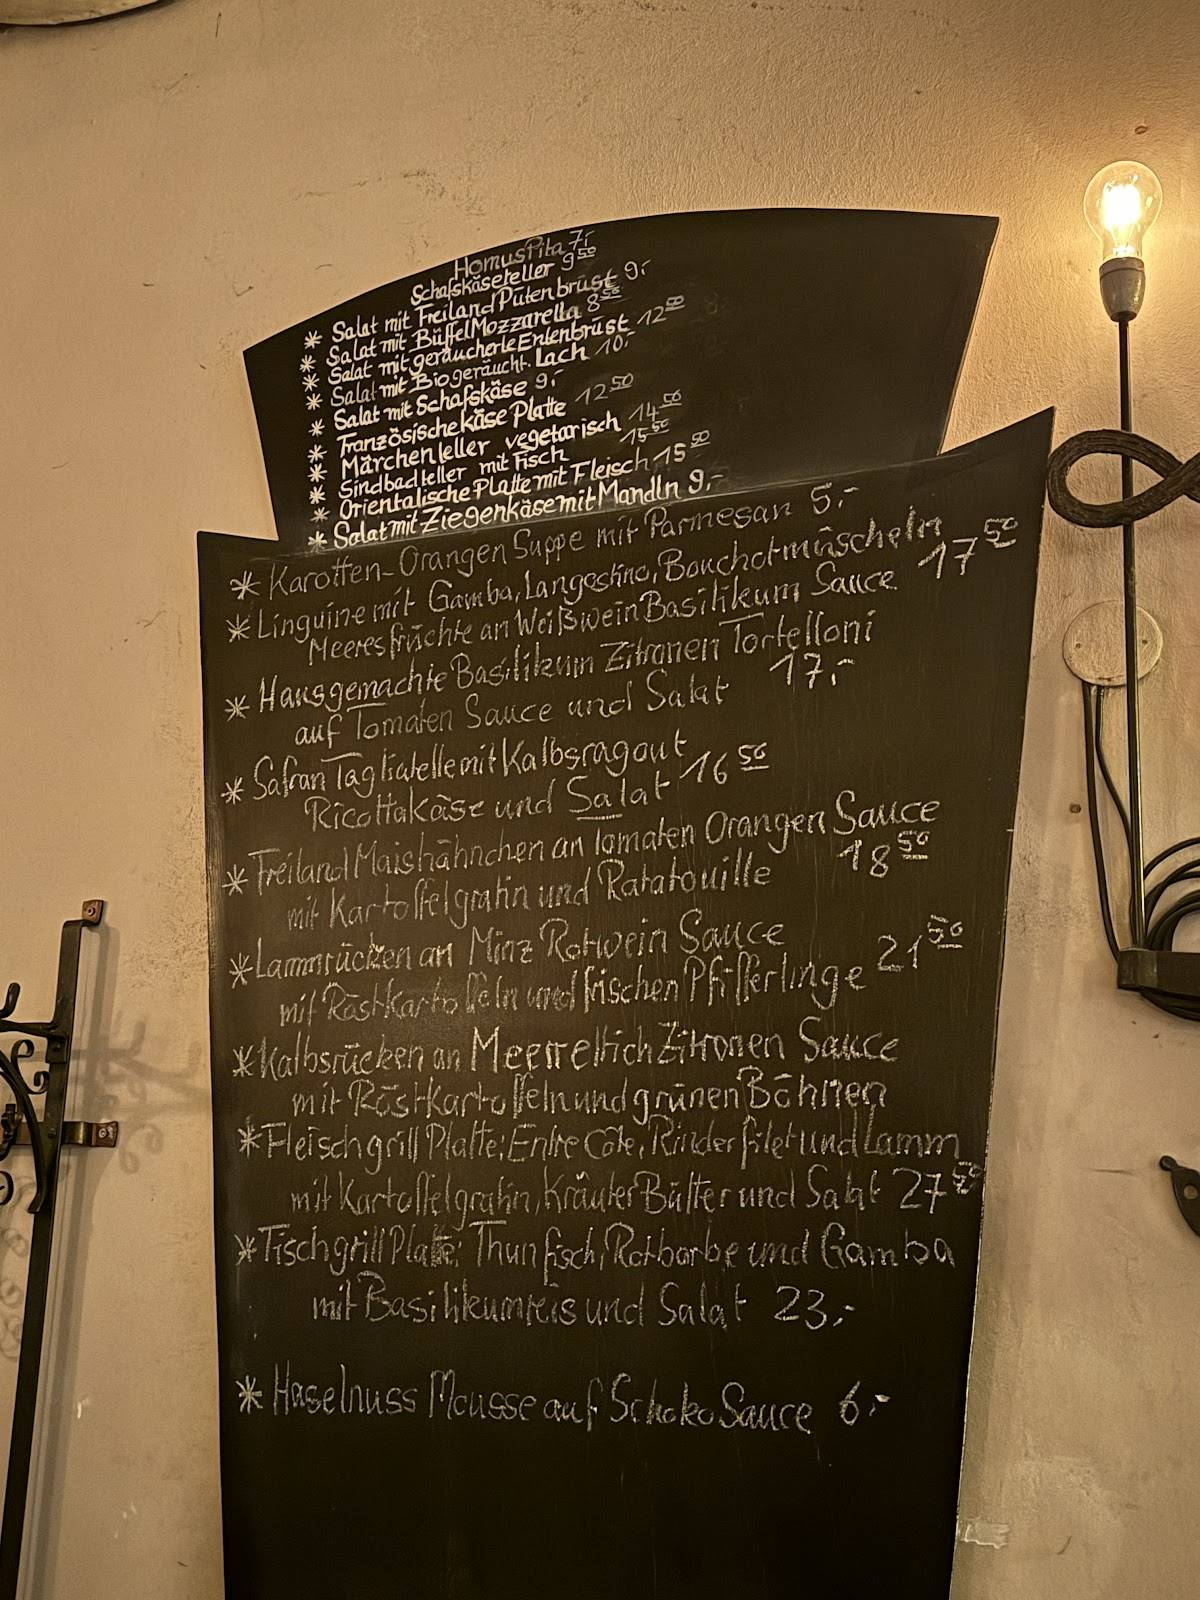 HomusPita 7,-
Schafskäseteller 9 50
* Salat mit Freiland Putenbrust 9,-
* Salat mit BüffelMozzarella 8 50
* Salat mit geräucherte Entenbrust 12 00
* Salat mit Bio geräucht. Lach 10,-
* Salat mit Schafskäse 9,-
* Französische Käse Platte 12 50
* Märchenteller vegetarisch 14 50
* Sindbadteller mit Fisch 15 50
* Orientalische Platte mit Fleisch 15 50
* Salat mit Ziegenkäse mit Mandln 9,-
* Karotten-Orangen Suppe mit Parmesan 5,-
* Linguine mit Gamba, Langostino, Bouchotmüscheln
Meeresfrüchte an Weißwein Basilikum Sauce 17 50
* Hausgemachte Basilikum Zitronen Tortelloni
auf Tomaten Sauce und Salat 17,-
* Safran Tagliatelle mit Kalbsragout
Ricottakäse und Salat 16 50
* Freiland Maishähnchen an Tomaten Orangen Sauce
mit Kartoffelgratin und Ratatouille 18 50
* Lammrücken an Minz Rotwein Sauce
mit Röstkartoffeln und frischen Pfifferlinge 21 50
* Kalbsrücken an Meerrettich Zitronen Sauce
mit Röstkartoffeln und grünen Böhnen
* Fleischgrill Platte: Entre Côte, Rinderfilet und Lamm
mit Kartoffelgratin, Kräuter Bütter und Salat 27 50
* Fischgrill Platte: Thunfisch, Rotbarbe und Gamba
mit Basilikumreis und Salat 23,-
* Haselnuss Mousse auf Schoko Sauce 6,-